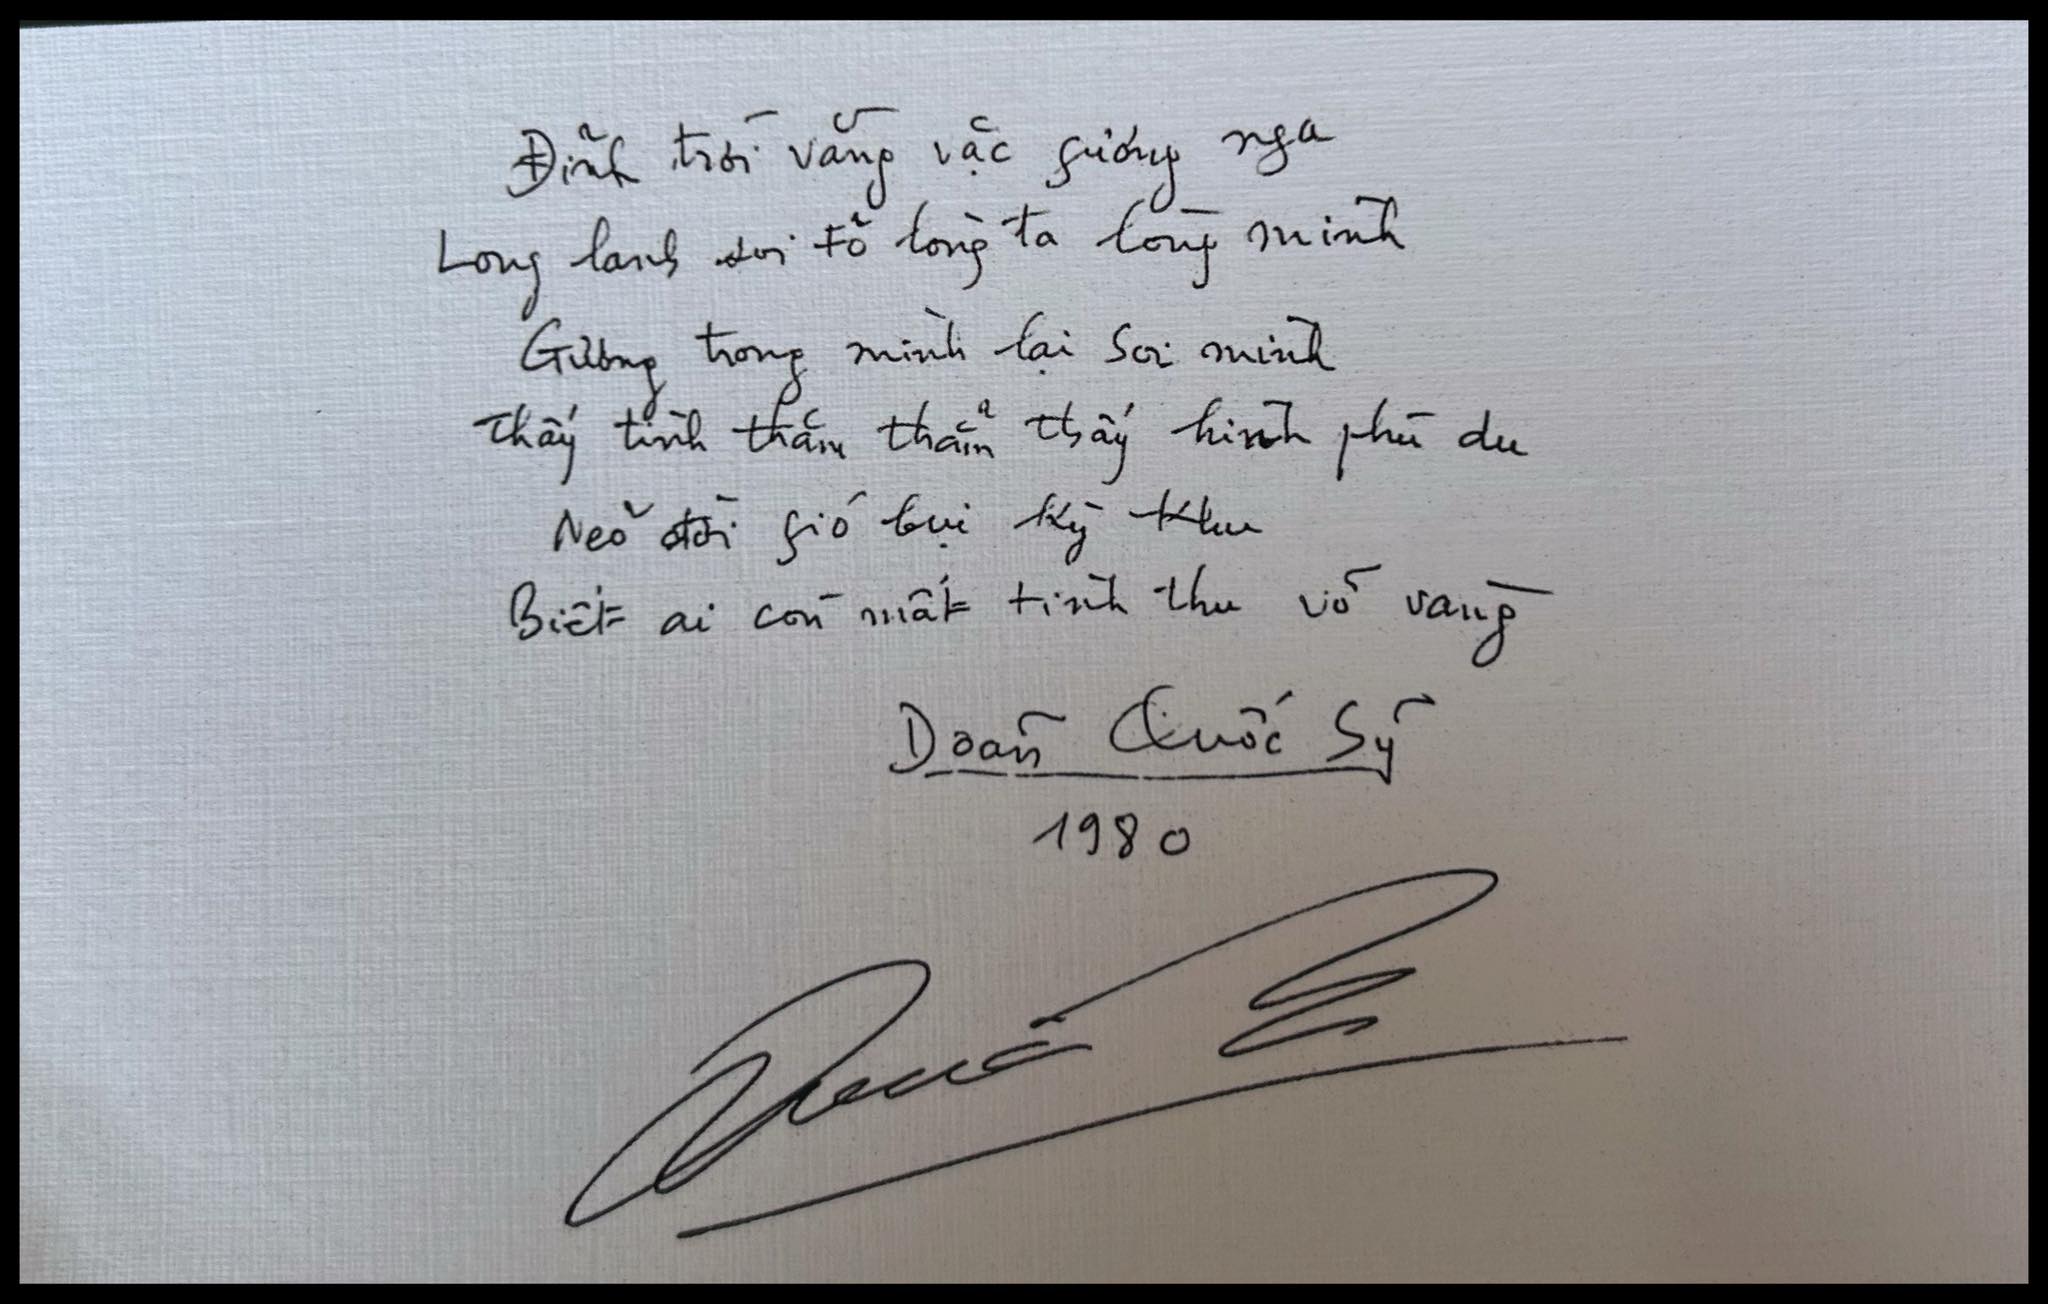 Đỉnh trời vằng vặc gương nga
Long lanh soi tỏ lòng ta lòng mình
Gương trong mình lại soi mình
Thấy tình thăm thẳm thấy hình phù du
Nẻo đời gió bụi kỳ khu
Biết ai còn mất tình thu võ vàng
Doãn Quốc Sỹ
1980